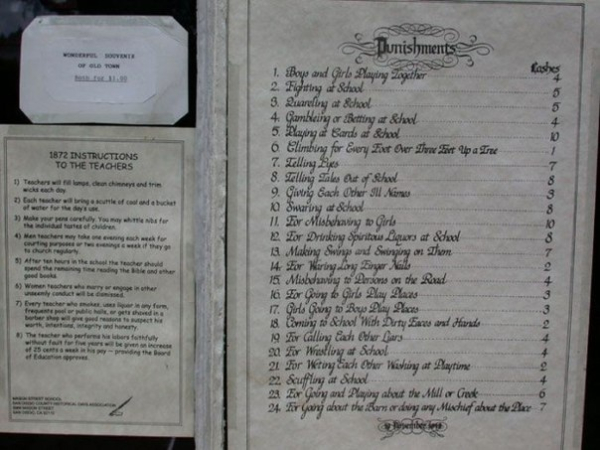 WONDERFUL SOUVENIR
OF OLD TOWN
Both for $1.00
1872 INSTRUCTIONS
TO THE TEACHERS
1) Teachers will fill lamps, clean chimneys and trim
wicks each day.
2) Each teacher will bring a scuttle of coal and a bucket
of water for the day's use.
3) Make your pens carefully. You may whittle nibs for
the individual tastes of children.
4) Men teachers may take one evening each week for
courting purposes or two evenings a week if they go
to church regularly.
5) After ten hours in the school the teacher should
spend the remaining time reading the Bible and other
good books.
6) Women teachers who marry or engage in other
unseemly conduct will be dismissed.
7) Every teacher who smokes, uses liquor in any form,
frequents pool or public halls, or gets shaved in a
barber shop will give good reasons to suspect his
worth, intentions, integrity and honesty.
8) The teacher who performs his labors faithfully
without fault for five years will be given an increase
of 25 cents a week in his pay — providing the Board
of Education approves.
MASON STREET SCHOOL
SAN DIEGO COUNTY HISTORICAL DAYS ASSOCIATION
MASON STREET
SAN DIEGO, CA 92110
Punishments
Lashes
1. Boys and Girls Playing Together 4
2. Fighting at School 5
3. Quareling at School 5
4. Gambleing or Betting at School 4
5. Playing at Cards at School 10
6. Climbing for Every Foot Over Three Feet Up a Tree 1
7. Telling Lyes 7
8. Telling Tales Out of School 8
9. Giving Each Other Ill Names 3
10. Swaring at School 8
11. For Misbehaving to Girls 10
12. For Drinking Spiritous Liquors at School 8
13. Making Swings and Swinging on Them 7
14. For Waring Long Finger Nails 2
15. Misbehaving to Persons on the Road 4
16. For Going to Girls Play Places 3
17. Girls Going to Boys Play Places 3
18. Coming to School With Dirty Faces and Hands 2
19. For Calling Each Other Liars 4
20. For Wrestling at School 4
21. For Weting Each Other Washing at Playtime 2
22. Scuffling at School 4
23. For Going and Playing about the Mill or Creek 6
24. For Going about the Barn or doing any Mischief about the Place 7